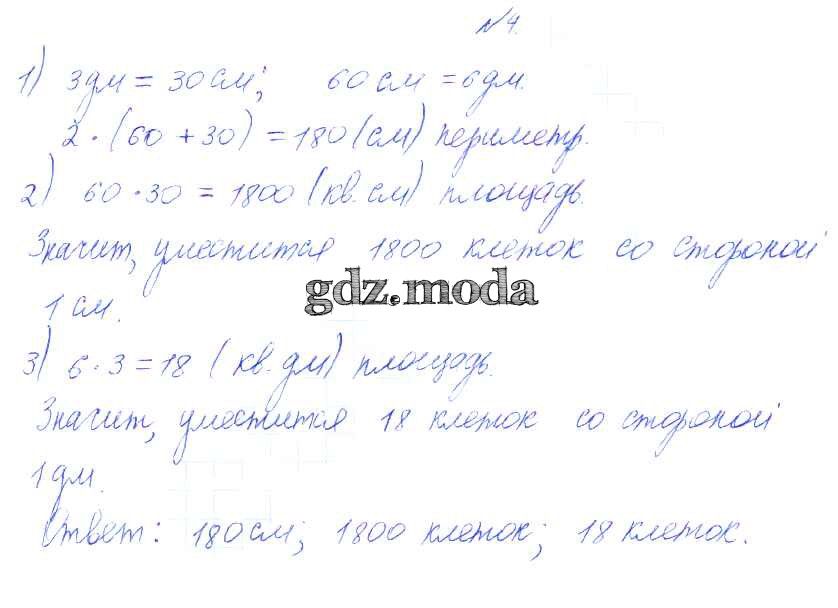 №4.
1) 3дм = 30см; 60см = 6дм.
2·(60+30)=180(см) периметр.
2) 60·30 = 1800 (кв.см) площадь.
Значит, уместится 1800 клеток со стороной
gdz.moda
1 см.
3) 6·3=18 (кв.дм) площадь.
Значит, уместится 18 клеток со стороной
1дм.
Ответ: 180см; 1800 клеток; 18 клеток.